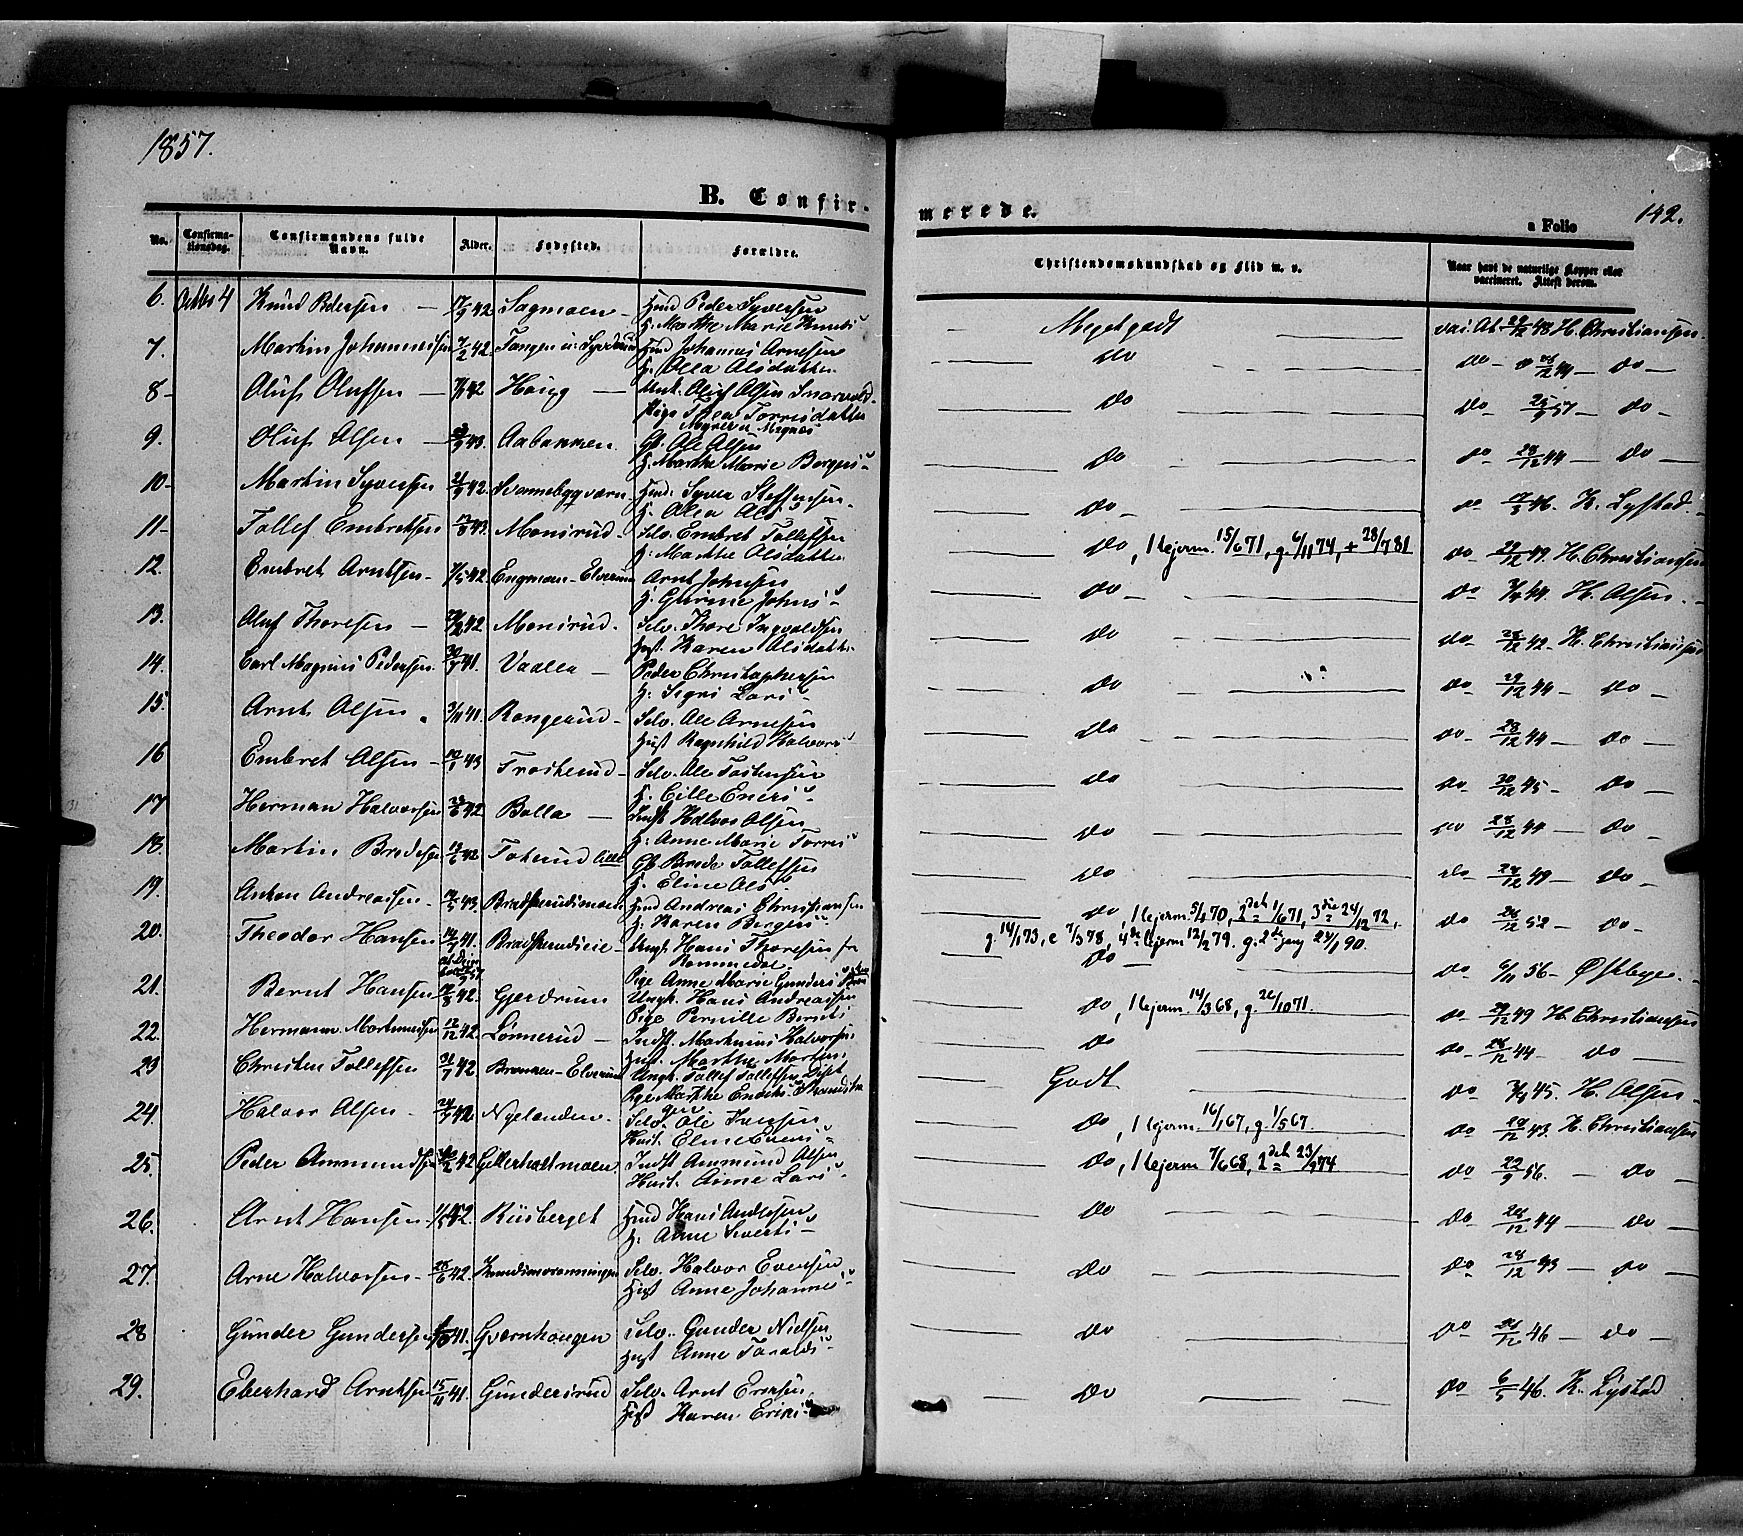 1857.
B. Confir-
merede.
142.
a Folio
No.
Confirma-
tionsdag.
Confirmandens fulde
Navn.
Alder.
Fødested.
Forældre.
Christendomskundskab og Flid m. v.
Naar havt de naturlige Kopper eller
vaccineret. Attest derom.
6. Octbr 4 Knud Pedersen — 17/9 42 Sagmoen — Huusmd Peder Syversen
H. Marthe Marie Knuds
— Meget godt — vac. At. 29/12 48 H. Christiansen
7. Martin Johannessen 7/2 42. Tangen Johannes Arnesen
H. Olea Olsdatter
do do — 28/12 44 — do —
8 - Oluf Oluffsen — 42 Houg — Unk. Oluf Olsen Snarvold
Pige Thea Torresdatter
do do 25/9 57 — do —
9. Oluf Olsen — 43. Aabakken Ole Olsen
H. Marthe Marie Borgers
do do 28/12 44 — do —
10 - Martin Syversen 21/9 42. Syver Steffensen
H. Olea Ols
do - 46. K. Lystad
11 - Tollef Embretsen 43. Monsrud - Selv. Embret Tollefsen
H. Marthe Olsdatter
do, 1 lejerm. 15/6 71, g. 6/11 74, + 28/7 81 do 29/12 49 H. Christiansen
12. Embret Arntsen - 7/5 42. Engmoen - Elverum Arnt Johnsen
H. Gurine Johns
do - do 44. H. Olsen
13. Oluf Thoresen — 42 Monsrud - Selv. Thore Ingvaldsen
Hust. Karen Olsdatter
do do 28/12 42 - H. Christiansen
14. Carl Magnus Pedersen 41. Vaalea — Peder Christophersen
H. Sigri Lars
do do 29/12 44 — do —
15. Arnt Olsen 3/11 41. Rongerud - Selv. Ole Arnesen
Hust Ragnhild Halvors
do do - 28/12 44 — do —
16 Embret Olsen - 10/1 43 Troserud - Selv. Ole Tostensen
H. Cille Eners
do do - 30/12 45 - do —
17 Herman Halvorsen 42 Bolla — Indst Halvor Olsen
H. Anne Marie Torres
do do 28/12 44 — do —
18. Martin Bredesen 42 Toserud lille Gb Brede Tollefsen
H. Eline Ols
do do - 28/12 49 — do —
19. Anton Andreassen - 43. Brødskerudsmoen Huusmd Andreas Christiansen
H. Karen Borgers
do, 1 lejerm. 5/4 70, 2 det 1/6 71, 3 die 24/12 72,
g. 14/1 73, e 7/3 78, 4 de lejerm 12/2 79. g. 2 den gang 24/1 90.
do 28/12 52 — do -
20. Theodor Hansen 14/9 41. Brødskerudeie - Ungk. Hans Thoresen fr
Rommedal
Pige Anne Marie Gunders
do do - 6/11 56 - Østbye
21. Bernt Hansen 42. Gjerdrum Ungk. Hans Andreassen
Pige Pernille Bernts
do, 1 lejerm. 14/3 68, g. 71. do - 29/12 49 H. Christiansen
22. Hermann Martinussen 12/12 42. Lønnerud — Indst. Martinus Halvorsen
Hust. Marthe Martins
do do - 28/12 44 — do —
23 Christen Tollefsen 21/7 42 Brønnen - Elverum Ungk. Tollef Tollefsen
Pige Marthe
Godt do 45. H. Olsen
24. Halvor Olsen - 42. Nylænden - Selv. Ole Iversen
Hust. Eline Evens
do, 1 lejerm. 16/1 67, g. 1/5 67 do - 29/12 43. H. Christiansen
25. Peder Ammundsen 42 Gillerholtmoen, Indst Ammund Olsen
Hust. Anne Lars
do, 1 lejerm 7/6 68, 2 det 23/9 74 do - 22/9 56. — do
26. Arnt Hansen 42. Riisberget Huusmd Hans Andersen
H. Anne Siverts
do do - 28/12 44 — do —
27. Arne Halvorsen - 28/6 42. Selv. Halvor Evensen
Hust Anne Johanne
do do - 28/12 43 — do —
28 Gunder Gundersen 41. Gværnhougen Selv. Gunder Nielsen
Hust Anne Taralds
do do - 28/12 46 — do —
29. Eberhard Arntsen 15/11 41. Gundersrud Selv. Arnt Ersesen
Hust Karen Eriks
do do - 6/5 46. K. Lystad